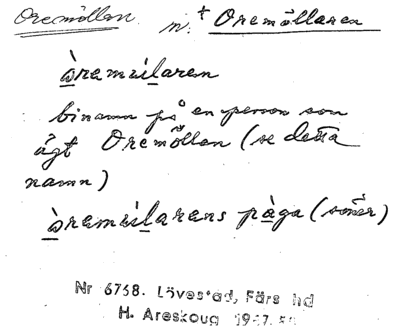 Oremöllan n. † Oremöllaren
òremȯlaren
binamn på en person som
ägt Oremöllan (se detta
namn)
òremȯlarens pàga (söner)
Nr 6768. Lövestad, Färs hd
H. Areskoug